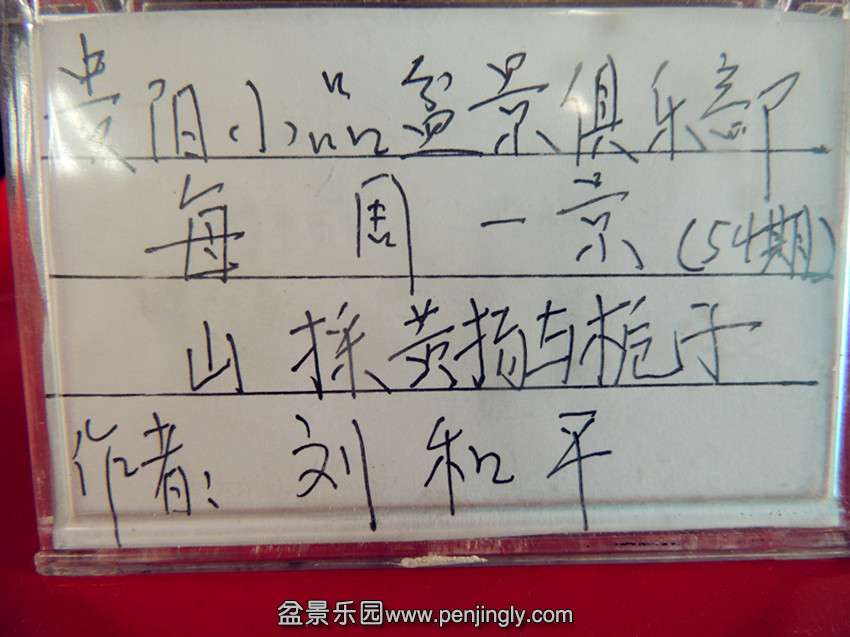 贵阳小品盆景俱乐部
每周一景(54期)
山採黄指与栀子
作者:刘和平
盆景乐园www.penjingly.com